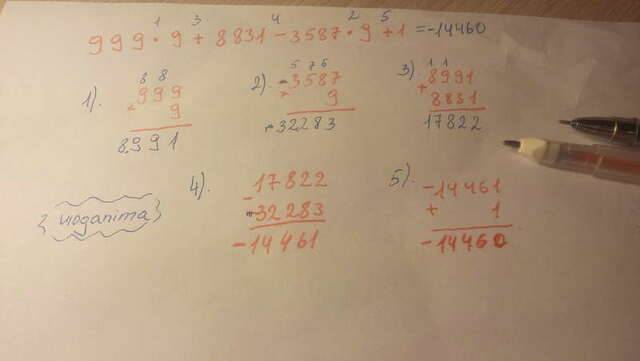 1 3 4 2 5
999·9+8831-3587·9+1=-14460
1).
8 8
999
× 9
8991
2).
5 7 6
-3587
× 9
-32283
3).
1 1
8991
+
8831
17822
4).
17822
-
32283
-14461
5).
-14461
+ 1
-14460
vioganima